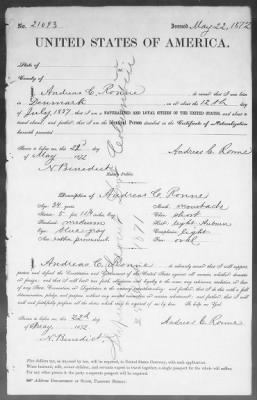 No. 21093 Issued May 22, 1872
UNITED STATES OF AMERICA.
State of
County of
I, Andreas C. Ronne do swear that I was born in
Denmark on or about the 12th day
of July, 1837; that I am a NATURALIZED AND LOYAL CITIZEN OF THE UNITED STATES, and about to
travel abroad; and further, that I am the Identical Person described in the Certificate of Naturalization
herewith presented.
Sworn to before me, this 22nd
day of May 1872
Andreas C. Ronne
N. Benedict
Notary Public.
Description of Andreas C. Ronne
Age: 34 years
Stature: 5 feet inches, Eng.
Forehead: medium
Eyes: blue gray
Nose: rather prominent
Mouth: moustache
Chin: short
Hair: light Auburn
Complexion: light
Face: oval
I, Andreas C. Ronne do solemnly swear that I will support,
protect and defend the Constitution and Government of the United States against all enemies, whether domestic
or foreign; and that I will bear true faith, allegiance and loyalty to the same, any ordinance, resolution or law
of any State, Convention or Legislature to the contrary notwithstanding; and further, that I do this with a full
determination, pledge and purpose, without any mental reservation or evasion whatsoever; and further, that I will
well and faithfully perform all the duties which may be required of me by law. So help me God.
Sworn to before me, this 22th
day of May, 1872
Andreas C. Ronne
N. Benedict